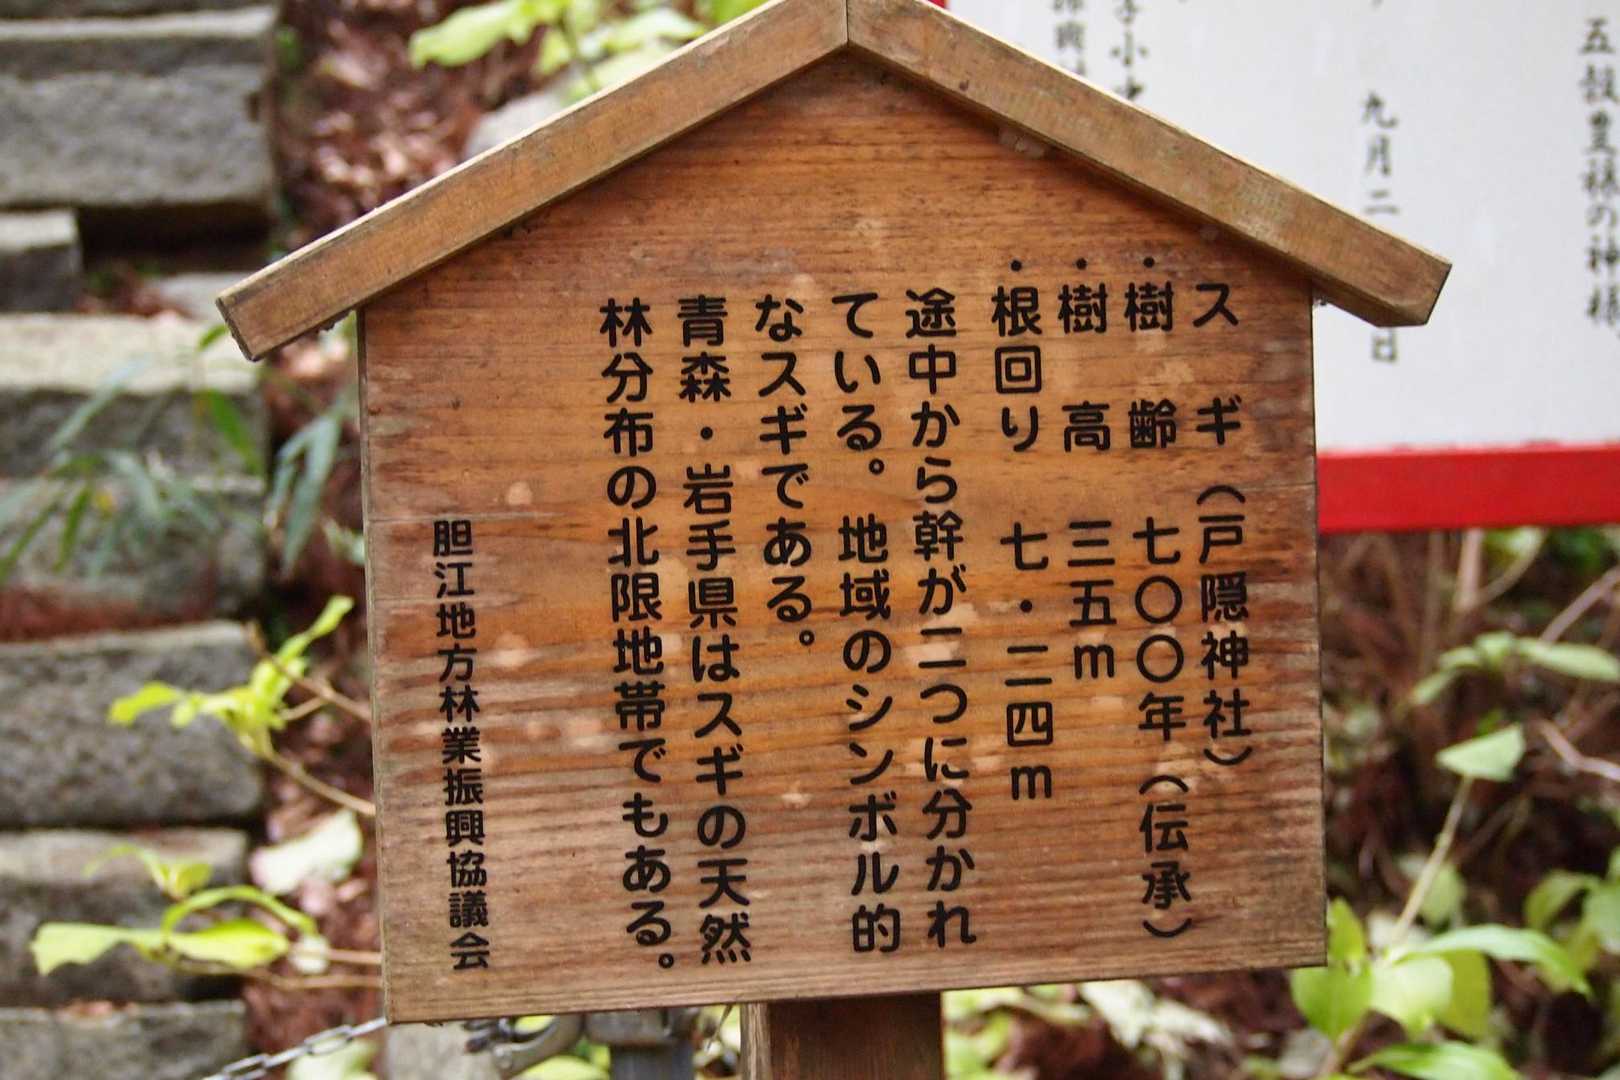 スギ(戸隠神社)
・樹齢 七〇〇年(伝承)
・樹高 三五m
・根回り 七・二四m
途中から幹が二つに分かれ
ている。地域のシンボル的
なスギである。
青森・岩手県はスギの天然
林分布の北限地帯でもある。
胆江地方林業振興協議会
五穀豊穣の神様
九月二
日